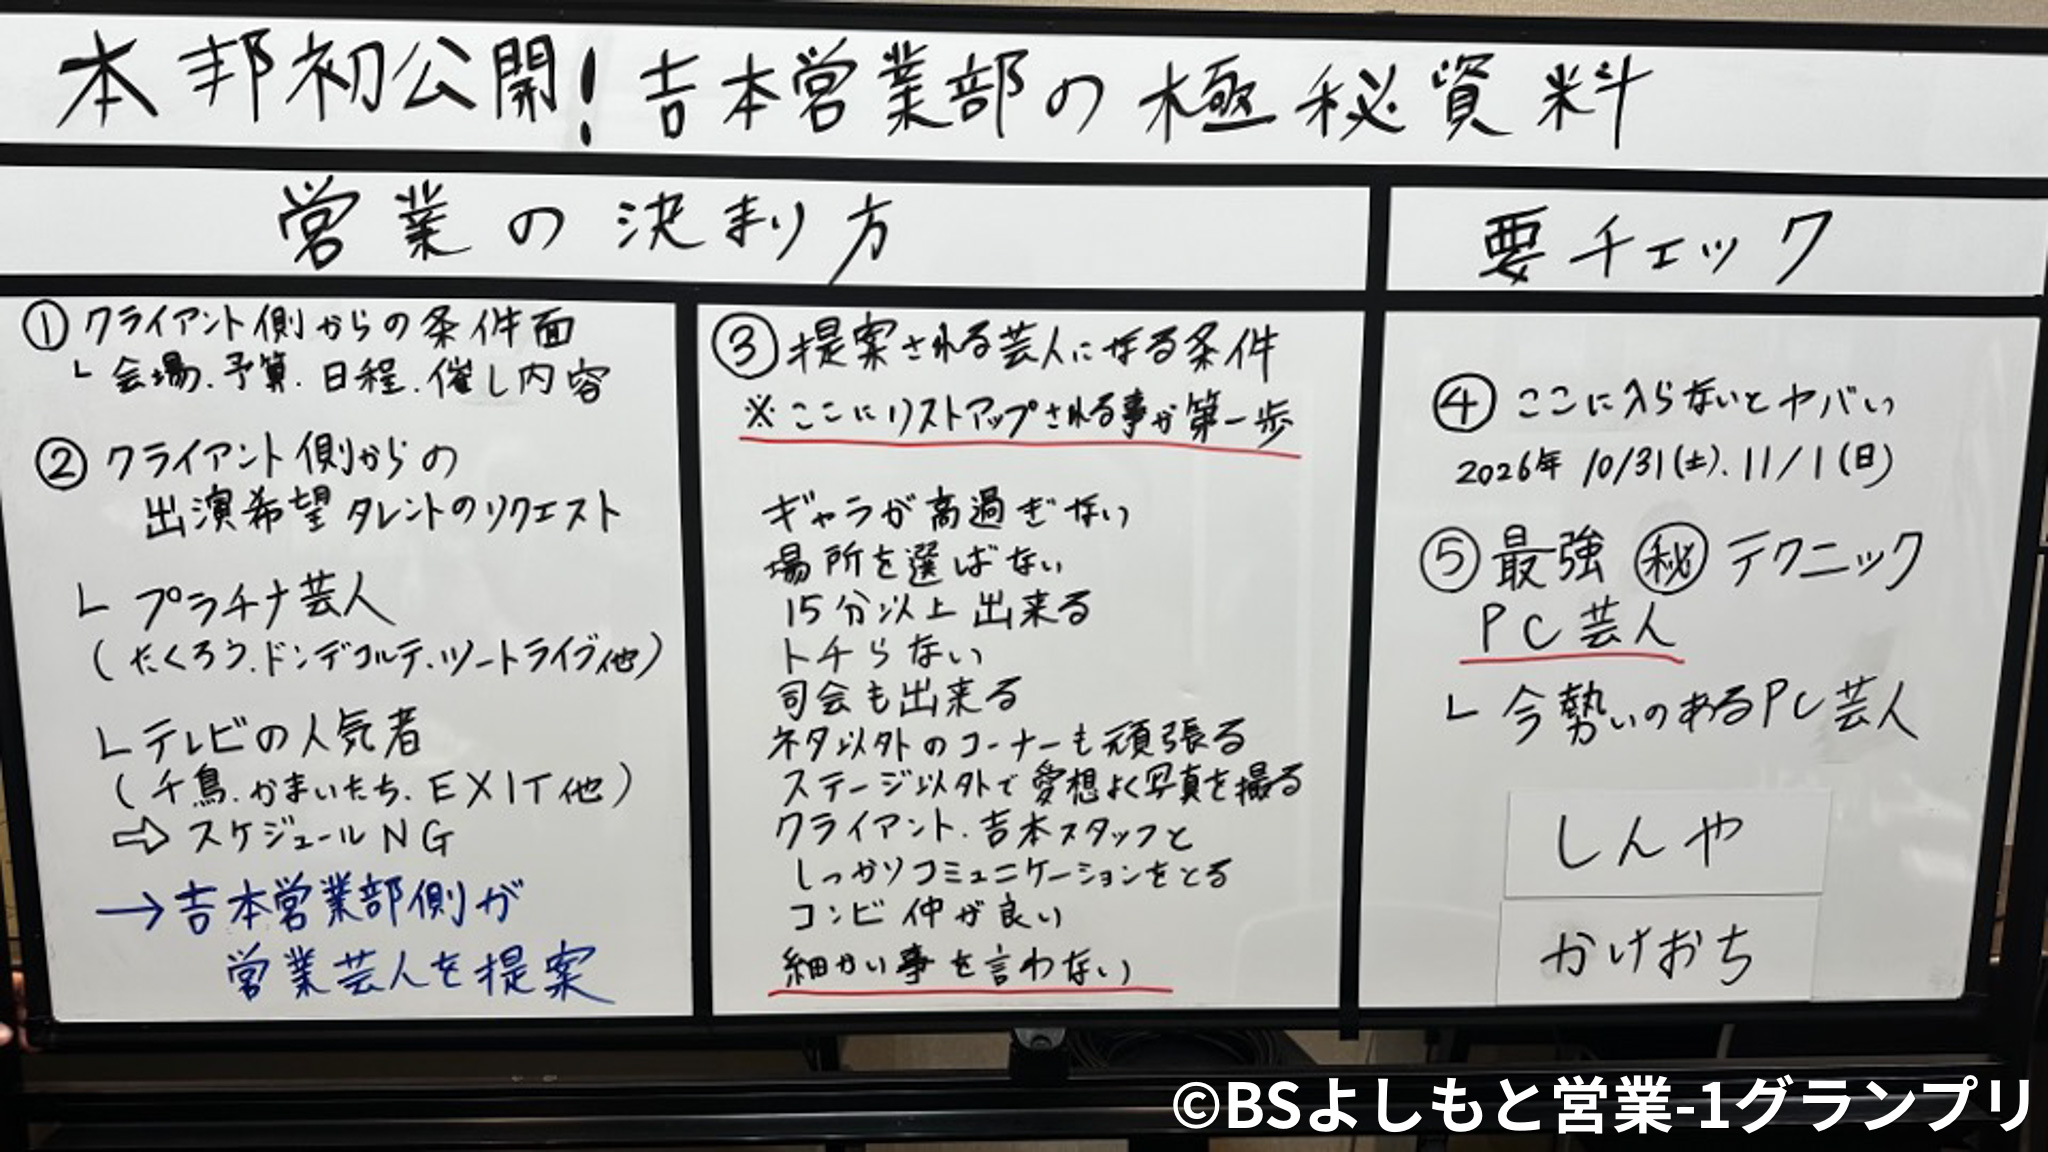 本邦初公開!吉本営業部の極秘資料
営業の決まり方
要チェック
①クライアント側からの条件面
└会場.予算.日程.催し内容
②クライアント側からの
出演希望タレントのリクエスト
└プラチナ芸人
(たくろう.ドンデコルテ.ツートライブ他)
└テレビの人気者
(千鳥.かまいたち.EXIT他)
⇨スケジュールNG
→吉本営業部側が
営業芸人を提案
③提案される芸人になる条件
※ここにリストアップされる事が第一歩
ギャラが高過ぎない
場所を選ばない
15分以上出来る
トチらない
司会も出来る
ネタ以外のコーナーも頑張る
ステージ以外で愛想よく写真を撮る
クライアント.吉本スタッフと
しっかりコミュニケーションをとる
コンビ仲が良い
細かい事を言わない
④ここに入らないとヤバい
2026年 10/31(土).11/1(日)
⑤最強㊙テクニック
PC芸人
└今勢いのあるPC芸人
しんや
かけおち
©BSよしもと営業-1グランプリ